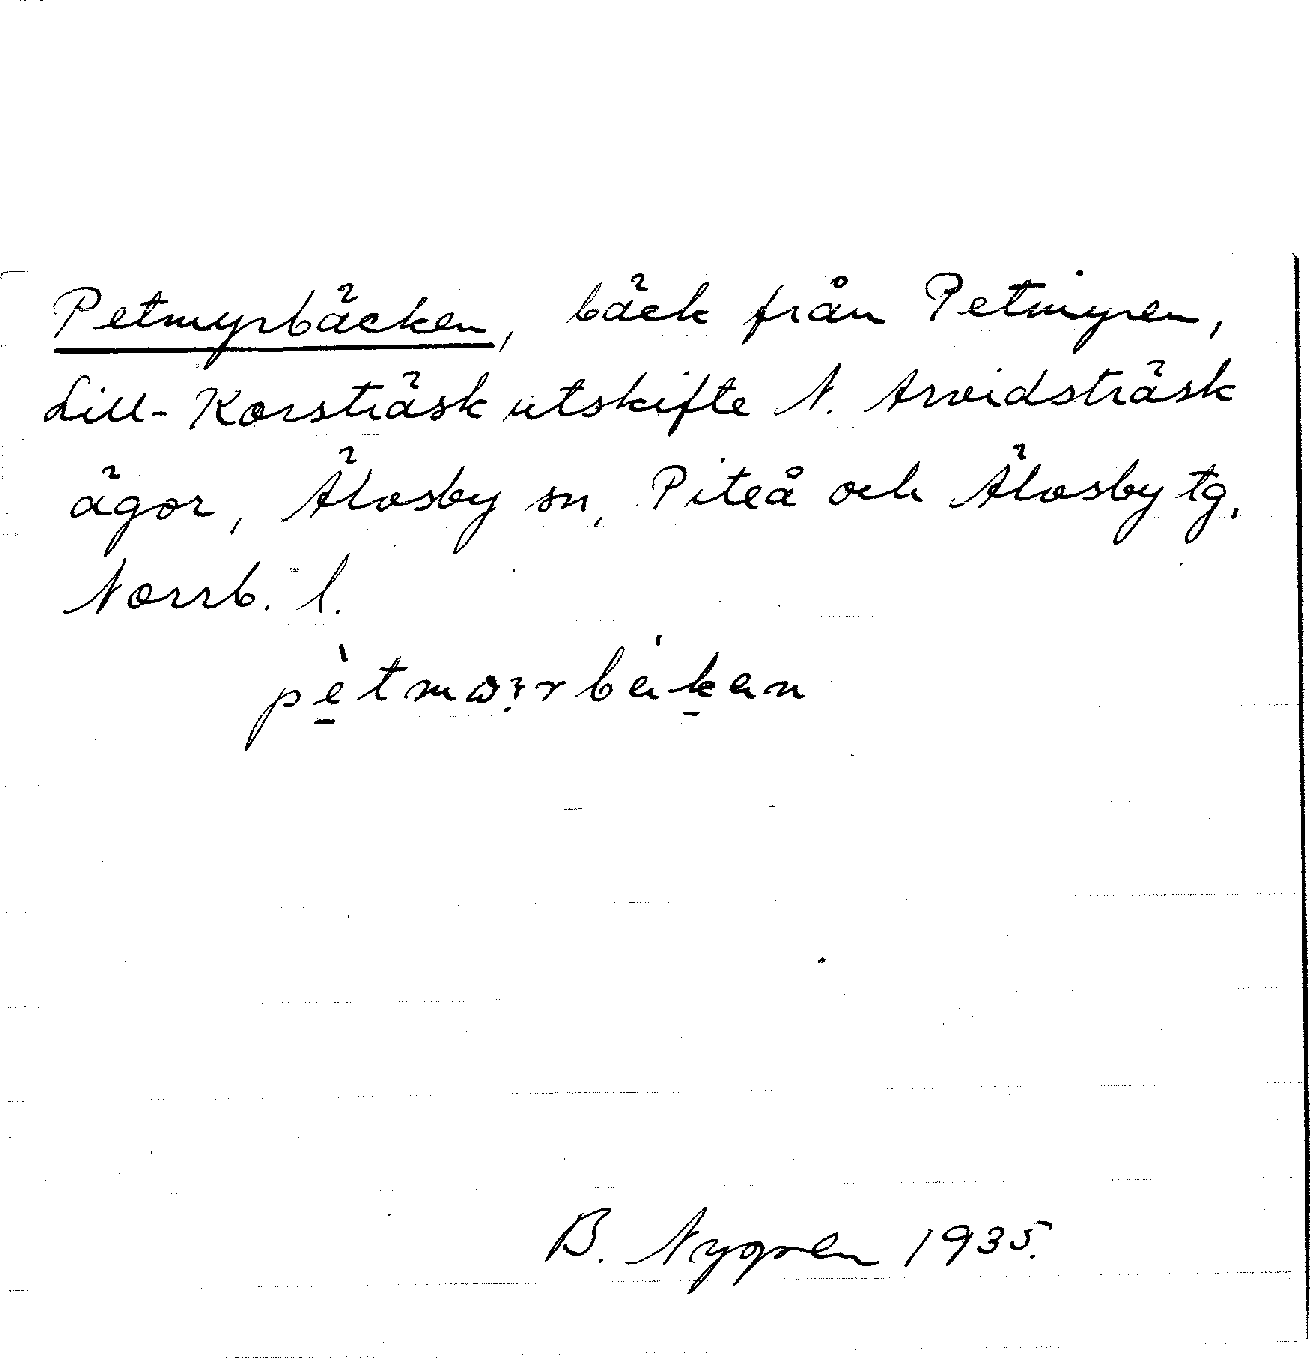 Petmyrbäcken, bäck från Petmyren,
Lill-Korsträsk utskifte N. Arvidsträsk
ägor, Älvsby sn, Piteå och Älvsby tg.
Norrb. l.
B. Nygren 1935.